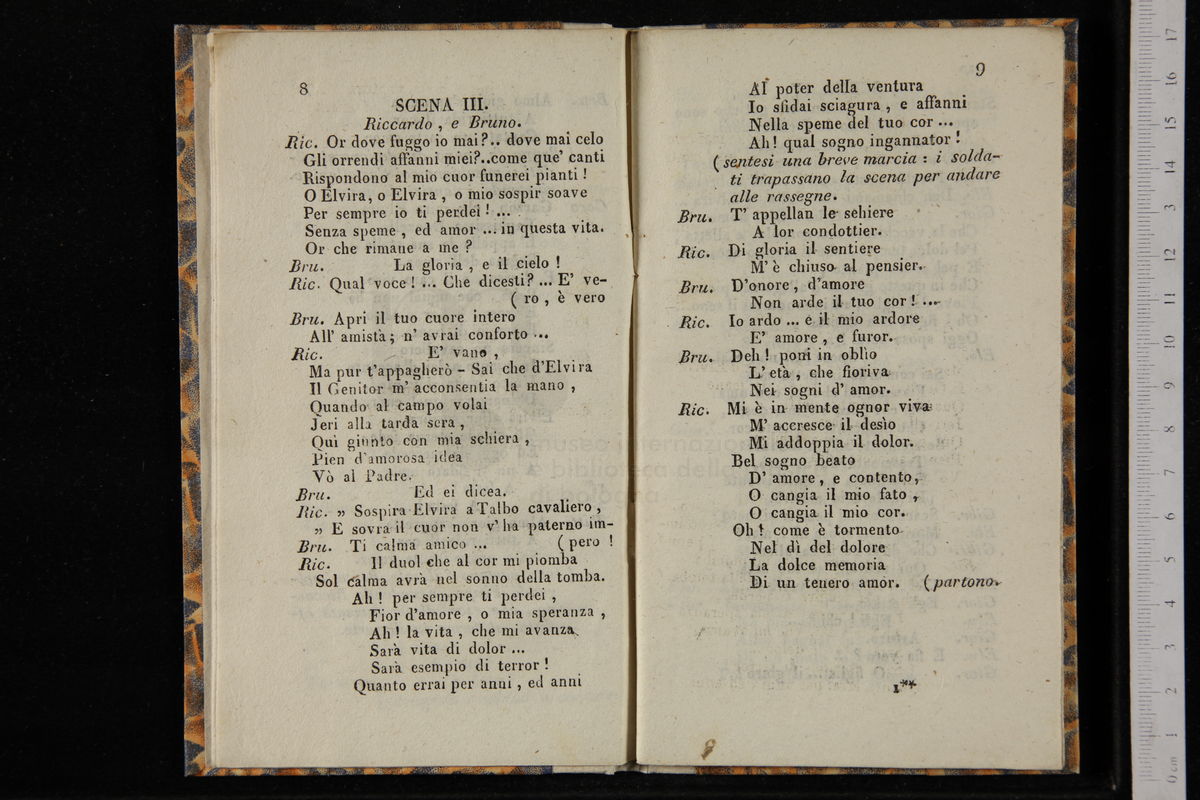 8
SCENA III.
Riccardo , e Bruno.
Ric. Or dove fuggo io mai ?.. dove mai celo
Gli orrendi affanni miei?..come que' canti
Rispondono al mio cuor funerei pianti !
O Elvira, o Elvira , o mio sospir soave
Per sempre io ti perdei ! ...
Senza speme , ed amor ... in questa vita.
Or che rimane a me ?
Bru. La gloria , e il cielo !
Ric. Qual voce ! ... Che dicesti? ... E' ve-
( ro , è vero
Bru. Apri il tuo cuore intero
All' amistà ; n' avrai conforto ...
Ric. E' vano ,
Ma pur t'appagherò - Sai che d'Elvira
Il Genitor m' acconsentia la mano ,
Quando al campo volai
Jeri alla tarda sera ,
Qui giunto con mia schiera ,
Pien d'amorosa idea
Vò al Padre.
Bru. Ed ei dicea.
Ric. „ Sospira Elvira a Talbo cavaliero ,
„ E sovra il cuor non v' ha paterno im-
Bru. Ti calma amico ... ( pero !
Ric. Il duol che al cor mi piomba
Sol calma avrà nel sonno della tomba.
Ah ! per sempre ti perdei ,
Fior d'amore , o mia speranza ,
Ah ! la vita , che mi avanza
Sarà vita di dolor ...
Sarà esempio di terror !
Quanto errai per anni , ed anni
9
Al poter della ventura
Io sfidai sciagura , e affanni
Nella speme del tuo cor ...
Ah ! qual sogno ingannator !
( sentesi una breve marcia : i solda-
ti trapassano la scena per andare
alle rassegne.
Bru. T' appellan le sehiere
A lor condottier.
Ric. Di gloria il sentiere
M' è chiuso al pensier.
Bru. D'onore , d'amore
Non arde il tuo cor ! ...
Ric. Io ardo ... e il mio ardore
E' amore , e furor.
Bru. Deh ! poni in oblìo
L' età , che fioriva
Nei sogni d' amor.
Ric. Mi è in mente ognor viva
M' accresce il desìo
Mi addoppia il dolor.
Bel sogno beato
D' amore , e contento ,
O cangia il mio fato ,
O cangia il mio cor.
Oh ! come è tormento
Nel dì del dolore
La dolce memoria
Di un tenero amor. ( partono.
1**